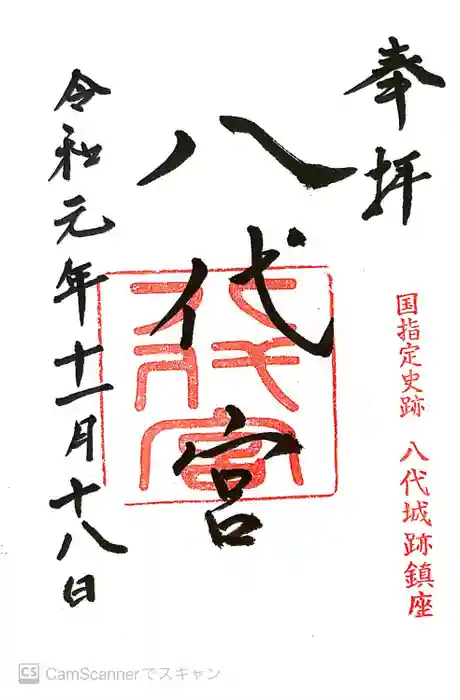 奉拝
国指定史跡 八代城跡鎮座
八代宮
令和元年十一月十八日
CS CamScannerでスキャン